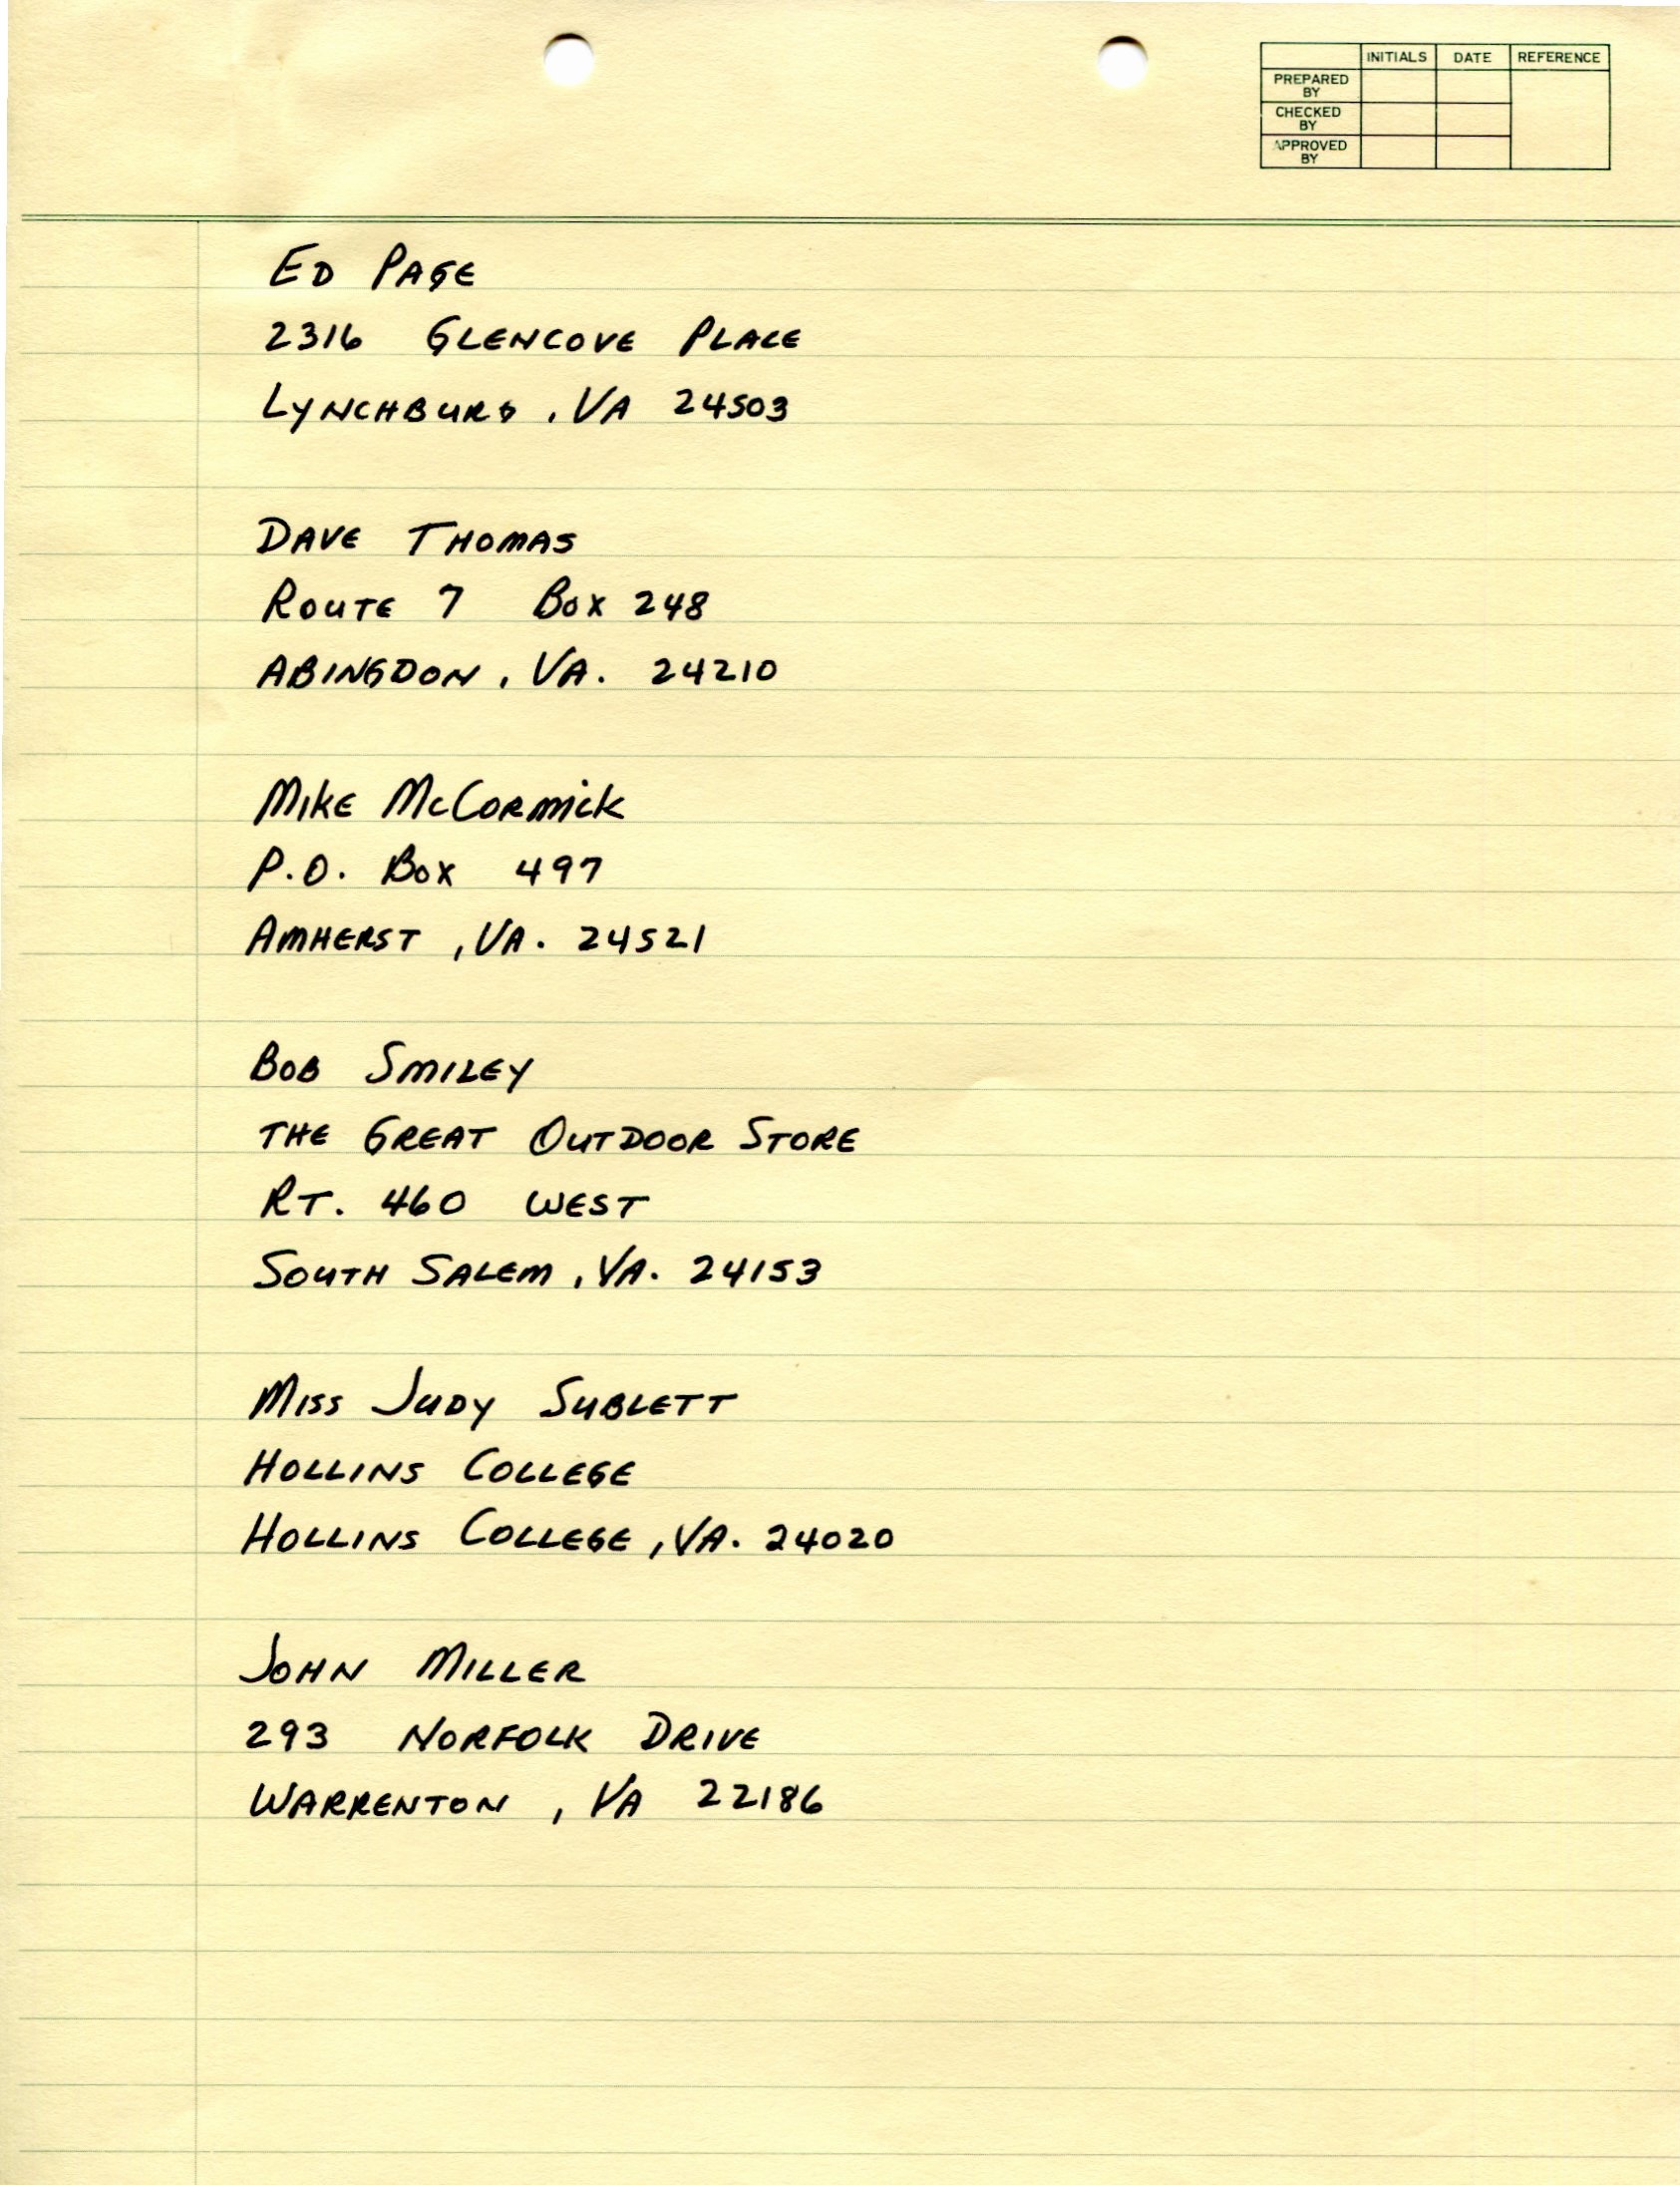 INITIALS DATE REFERENCE
PREPARED
BY
CHECKED
BY
APPROVED
BY
ED PAGE
2316 GLENCOVE PLACE
LYNCHBURG, VA 24503
DAVE THOMAS
ROUTE 7 BOX 248
ABINGDON, VA. 24210
MIKE McCORMICK
P.O. BOX 497
AMHERST, VA. 24521
BOB SMILEY
THE GREAT OUTDOOR STORE
RT. 460 WEST
SOUTH SALEM, VA. 24153
MISS JUDY SUBLETT
HOLLINS COLLEGE
HOLLINS COLLEGE, VA. 24020
JOHN MILLER
293 NORFOLK DRIVE
WARRENTON, VA 22186